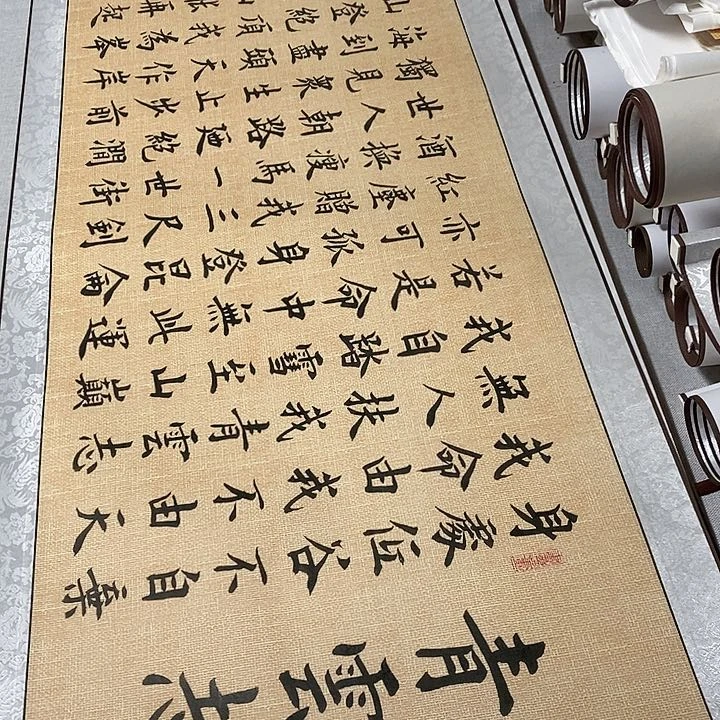 青雲志
身處低谷不自棄
我命由我不由天
無人扶我青雲志
我自踏雪至山巔
若是命中無此運
亦可孤身登昆侖
紅塵贈我三尺劍
酒換瘦馬一世街
世人朝路絕澗
獨見眾生止步前
海到盡頭天作岸
山登絕頂我為峯